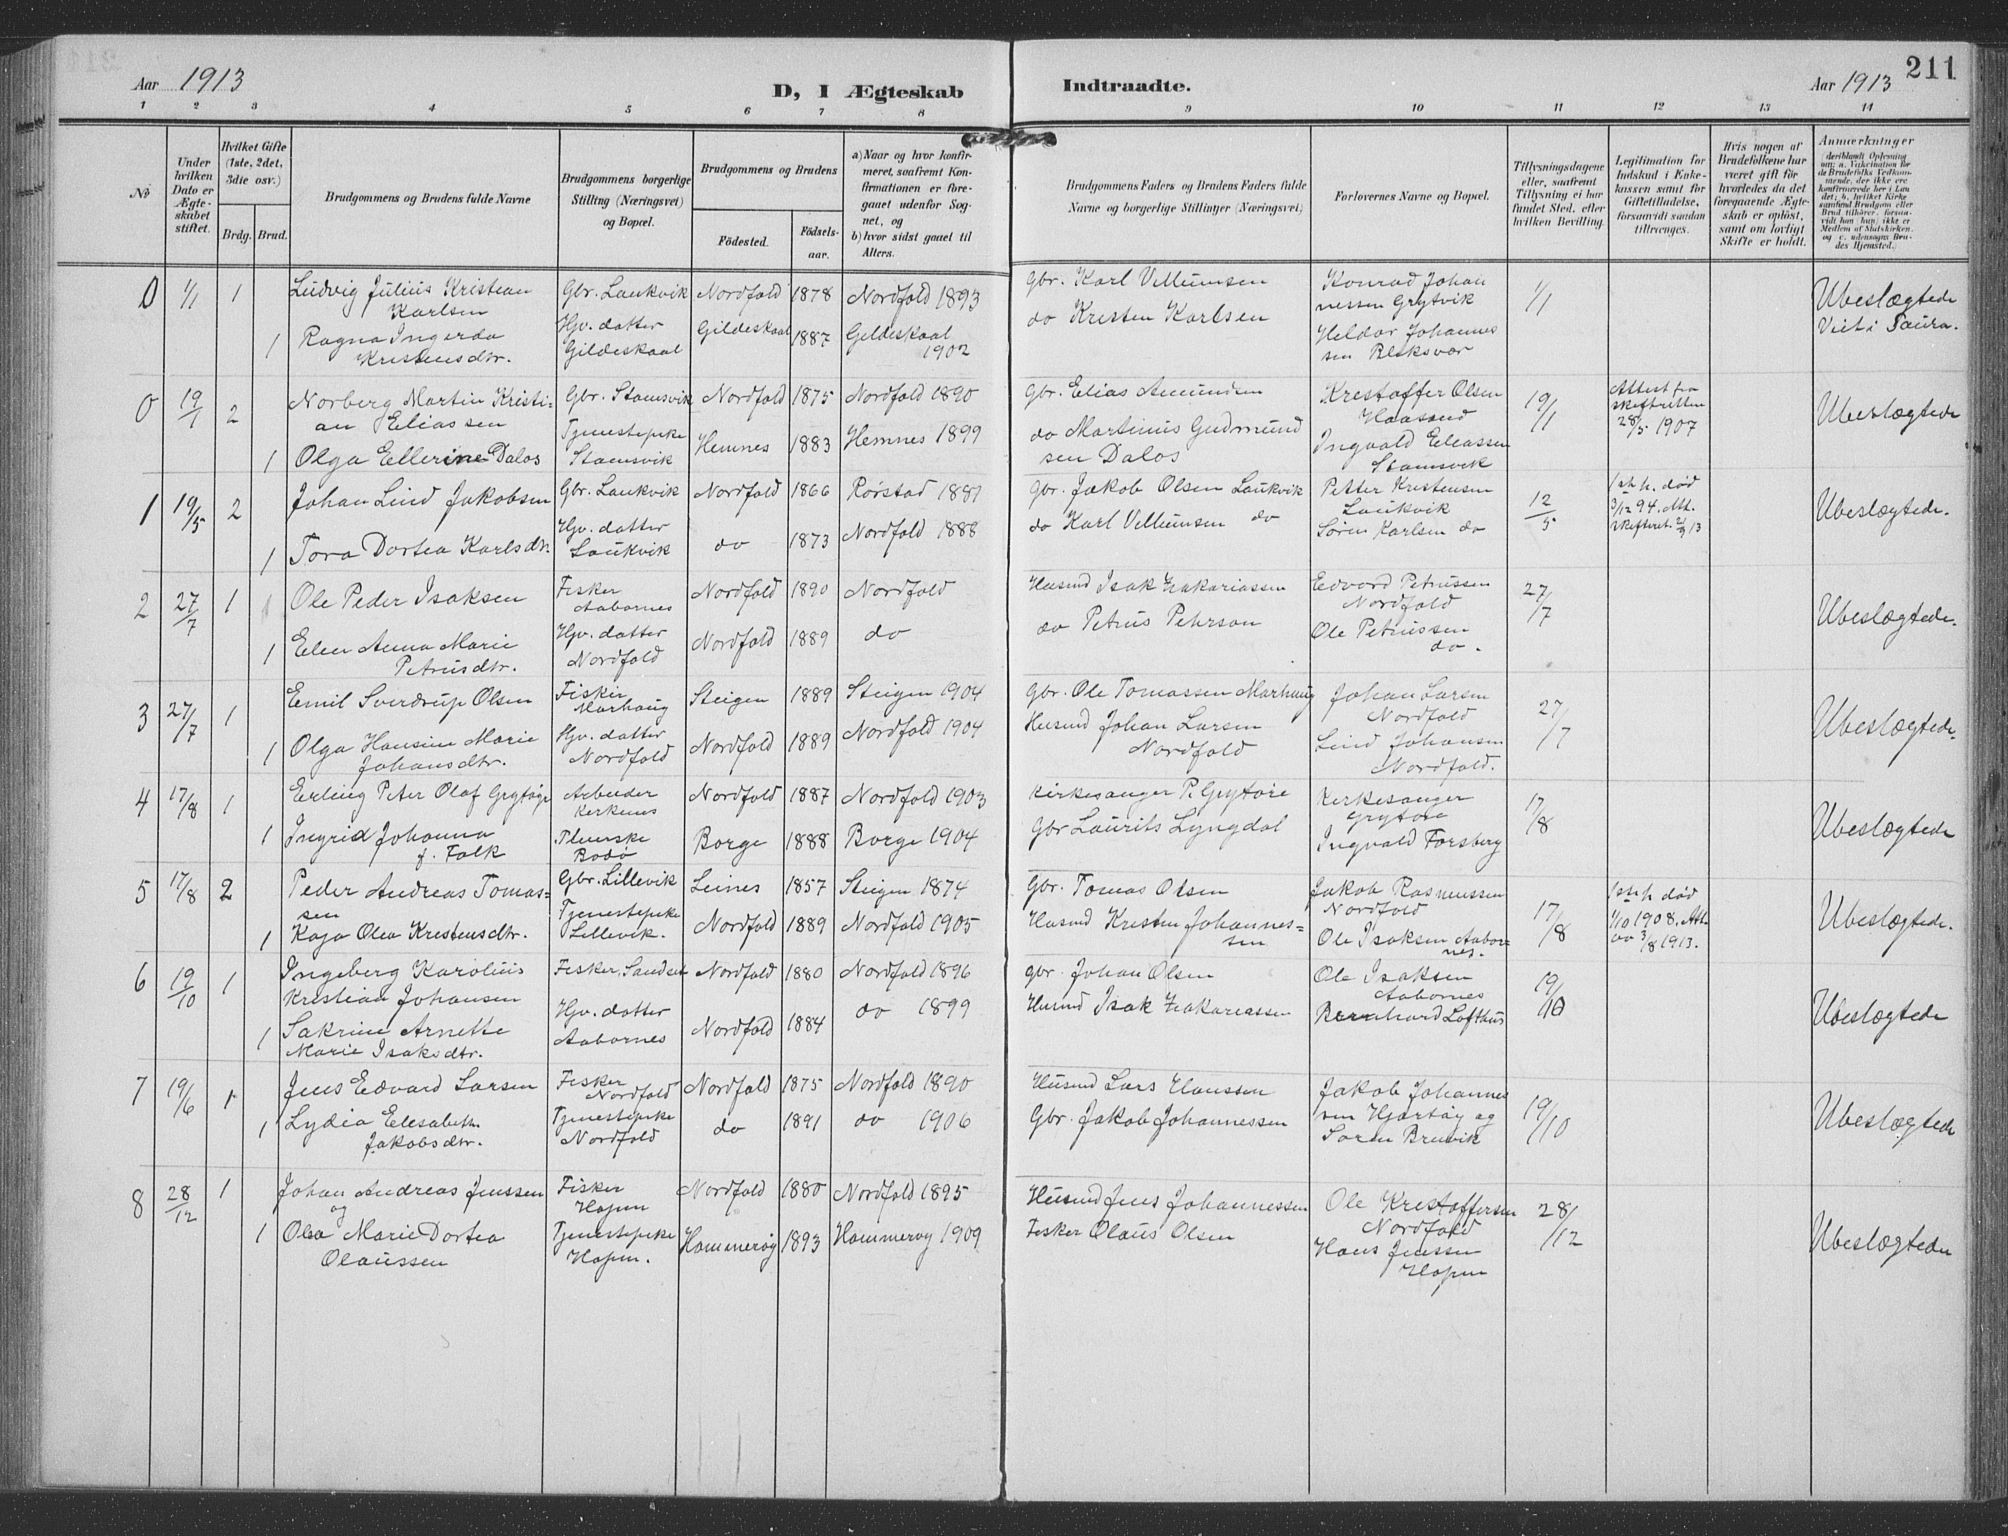 211
Aar 1913
D, I Ægteskab Indtraadte.
Aar 1913
1 2 3 4 5 6 7 8 9 10 11 12 13 14
No
Under hvilken Dato er Ægteskabet stiftet.
Hvilket Gifte (1ste, 2det, 3die osv.)
Brdg. Brud.
Brudgommens og Brudens fulde Navne
Brudgommens borgerlige Stilling (Næringsvei) og Bopæl.
Brudgommens og Brudens
Födested.
Födselsaar.
a) Naar og hvor konfirmeret, saafremt Konfirmationen er foregaaet udenfor Sognet, og
b) hvor sidst gaaet til Alters.
Brudgommens Faders og Brudens Faders fulde Navne og borgerlige Stillinger (Næringsvei)
Forlovernes Navne og Bopæl.
Tillysningsdagene eller, saafremt Tillysning ei har fundet Sted, efter hvilken Bevilling.
Legitimation for Indskud i Enkekassen samt for Giftetilladelse, forsaavidt saadan tiltrænges.
Hvis nogen af Brudefolkene har været gift för hvorledes da det foregaaende Ægteskab er oplöst, samt om lovligt Skifte er holdt.
Anmærkninger
0 1/1 1 Ludvig Julius Kristian Karlsen Gbr. Laukvik Nordfold 1878 Nordfold 1893 Gbr. Karl Villumsen Konrad Johannessen Grytvik 1/1 Ubeslægtede
1 Ragna Ingerda Kristensdtr. Hjv. datter Gildeskaal Gildeskaal 1887 Gildeskaal 1902 do Kristen Karlsen Heldar Johannessen Bliksvær
0 19/1 2 Norberg Martin Kristian Eliassen Gbr. Stamsvik Nordfold 1875 Nordfold 1890 Gbr. Elias Amundsen Kristoffer Olsen 19/1 Attest fra skifteretten 28/5 1907 Ubeslægtede
1 Olga Ellerine Dalos Tjenestepike Stamsvik Hemnes 1883 Hemnes 1899 do Martinus Gudmundsen Dalos Ingvald Eliassen Stamsvik
1 19/5 2 Johan Lind Jakobsen Gbr. Laukvik Nordfold 1866 Rørstad 1881 Gbr. Jakob Olsen Laukvik Petter Kristensen Laukvik 12/5 1ste h. død 3/12 94. Att. skifteret. 2/3 13 Ubeslægtede.
1 Tora Dortea Karlsdtr. Hjv. datter Laukvik do 1873 Nordfold 1888 do Karl Villumsen do Søren Karlsen do
2 27/7 1 Ole Peder Isaksen Fisker Aabornes Nordfold 1890 Nordfold Husmd Isak Zakariassen Edvard Petrussen Nordfold 27/7 Ubeslægtede.
1 Elen Anna Marie Petrusdtr. Hjv. datter Nordfold Nordfold 1889 do do Petrus Peterson Ole Petrussen do.
3 27/7 1 Emil Sverdrup Olsen Fisker Marhaug Steigen 1889 Steigen 1904 Gbr. Ole Tomassen Marhaug Johan Larsen Nordfold 27/7 Ubeslægtede.
1 Olga Hansine Marie Johansdtr. Hjv. datter Nordfold Nordfold 1889 Nordfold 1904 Husmd Johan Larsen Nordfold Lind Johansen Nordfold.
4 17/8 1 Erling Peter Olof Grytøyr Arbeider Kirkenes Nordfold 1887 Nordfold 1903 Kirkesanger P. Grytøre Kirkesanger Grytøre 17/8 Ubeslægtede
1 Ingrid Johanna f. Falk Bodø Borge 1888 Borge 1904 Gbr Laurits Lyngdal Ingvald Forsberg
5 17/8 2 Peder Andreas Tomassen Gbr. Lillevik Leines 1857 Steigen 1874 Gbr. Tomas Olsen Jakob Rasmussen Nordfold 17/8 1ste h død 1/10 1908. Att. av 3/8 1913. Ubeslægtede.
1 Kaja Olea Kristensdtr. Tjenestepike Lillevik. Nordfold 1889 Nordfold 1905 Husmd Kristen Johannessen Ole Isaksen Aabornes.
6 19/10 1 Ingeberg Karolius Kristian Johansen Fisker. Sandset Nordfold 1880 Nordfold 1896 Gbr. Johan Olsen Ole Isaksen Aabornes 19/10 Ubeslægtede
1 Sakrine Arnette Marie Isaksdtr. Hjv. datter Aabornes Nordfold 1884 do 1899 Husmd Isak Zakariassen Bernhard Lofthus
7 19/6 1 Jens Edvard Larsen Fisker Nordfold Nordfold 1875 Nordfold 1890 Husmd Lars Hanssen Jakob Johannessen Hjartøy og 19/10 Ubeslægtede
1 Lydia Elesabeth Jakobsdtr. Tjenestepike Nordfold do 1891 do 1906 Gbr. Jakob Johannessen Søren Bruvik
8 28/12 1 Johan Andreas Jenssen og Fisker Hopen Nordfold 1880 Nordfold 1895 Husmd Jens Johannessen Ole Kristoffersen Nordfold 28/12 Ubeslægtede
1 Olea Marie Dortea Olaussen Tjenestepike Hopen. Hammerøy 1893 Hammerøy 1909 Fisker Olaus Olsen Hans Jenssen Hopen